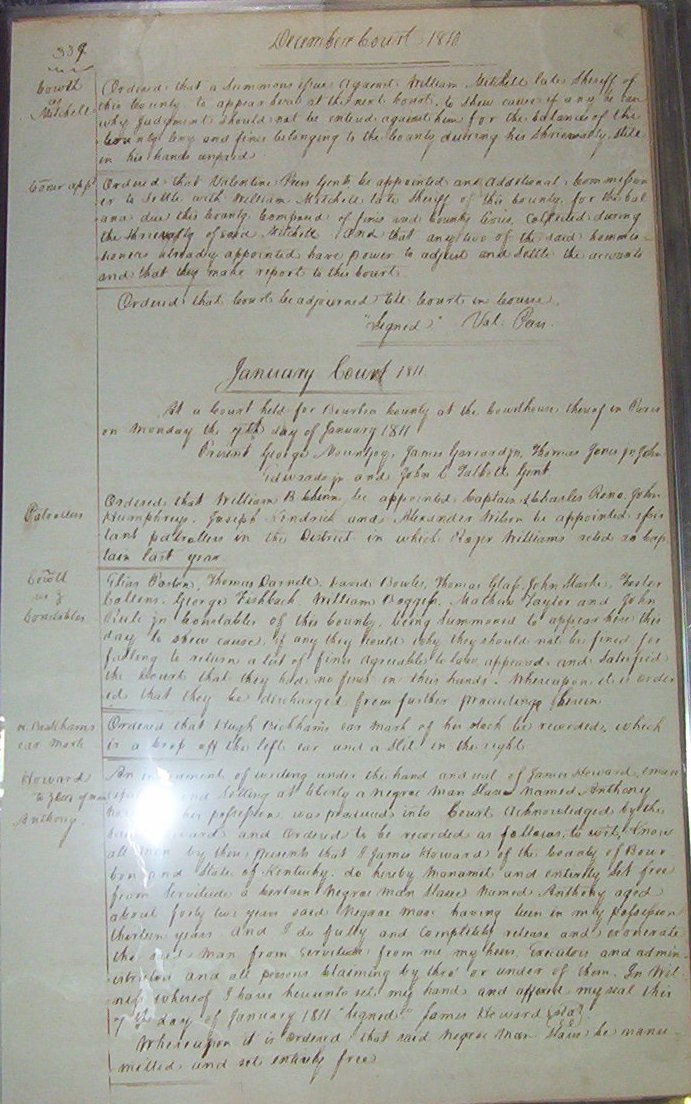 339
December Court 1810
Cowth
vs
Mitchell
Ordered that a Summons issue against William Mitchell late Sheriff of
this County to appear here at the next Court, to shew cause if any he can
why Judgment should not be entered against him for the balance of the
County levy and fines belonging to the County during his Shrievealty still
in his hands unpaid
Comr appt
Ordered that Valentine Peers Gent be appointed an additional Commission
er to Settle with William Mitchell late Sheriff of this County for the bal
ance due this County Composed of fines and County levies Collected during
the Shrievealty of said Mitchell and that any two of the said Commis-
sioners already appointed have power to adjust and Settle the accounts
and that they make report to this Court.
Ordered that Court be adjourned till Court in Course.
"Signed" Val. Peers
January Court 1811
At a Court held for Bourbon County at the Courthouse thereof in Paris
on Monday the 7th day of January 1811
Present George Mountjoy, James Garrard Jr, Thomas Jones Jr John
Edwards jr and John C Talbott Gent
Patrollers
Ordered that William B Chinn be appointed Captain & Charles Reno, John
Humphreys, Joseph Kendrick and Alexander Wilson be appointed assis
tant patrollers in the District in which Roger Williams acted as Cap
tain last year
Cowth
vs
Constables
Elias Paston, Thomas Darnell, David Bowles, Thomas Glaf, John Starke, Foster
Collens, George Fishback William Boggess, Mathew Taylor and John
Jr Constables of this County, being Summoned to appear here this
day to shew cause, if any they could why they should not be fined for
failing to return a list of fines Agreeable to law, appeared and Satisfied
the Court that they had no fines in their hands. Whereupon it is order
ed that they be discharged from further proceedings herein
ear Mark
Ordered that Hugh Bickham's ear mark of his stock be recorded, which
is a Crop off the left ear and a Slit in the right
Howard
To
Anthony
An instrument of writing under the hand and seal of James Howard, eman
and Setting at liberty a Negroe Man Slave Named Anthony
possession, was produced into Court Acknowledged by the
said Howard and Ordered to be recorded as follows, to wit, Know
all men by these presents that I James Howard of the County of Bour
bon and State of Kentucky, do hereby Manumit and entirely Set free
from Servitude a Certain Negroe Man Slave Named Anthony aged
about forty two years said Negroe Man having been in my possession
thirteen years and I do fully and Completely release and exonerate
the said Man from Servitude from me my heirs, Executors and admin
istrators and all persons Claiming by thro' or under of them. In Wit-
ness whereof I have hereunto set my hand and affixed my seal this
7th day of January 1811 "Signed" James Howard Seal
Whereupon it is ordered that said Negroe Man Slave be manu-
mitted and set entirely free